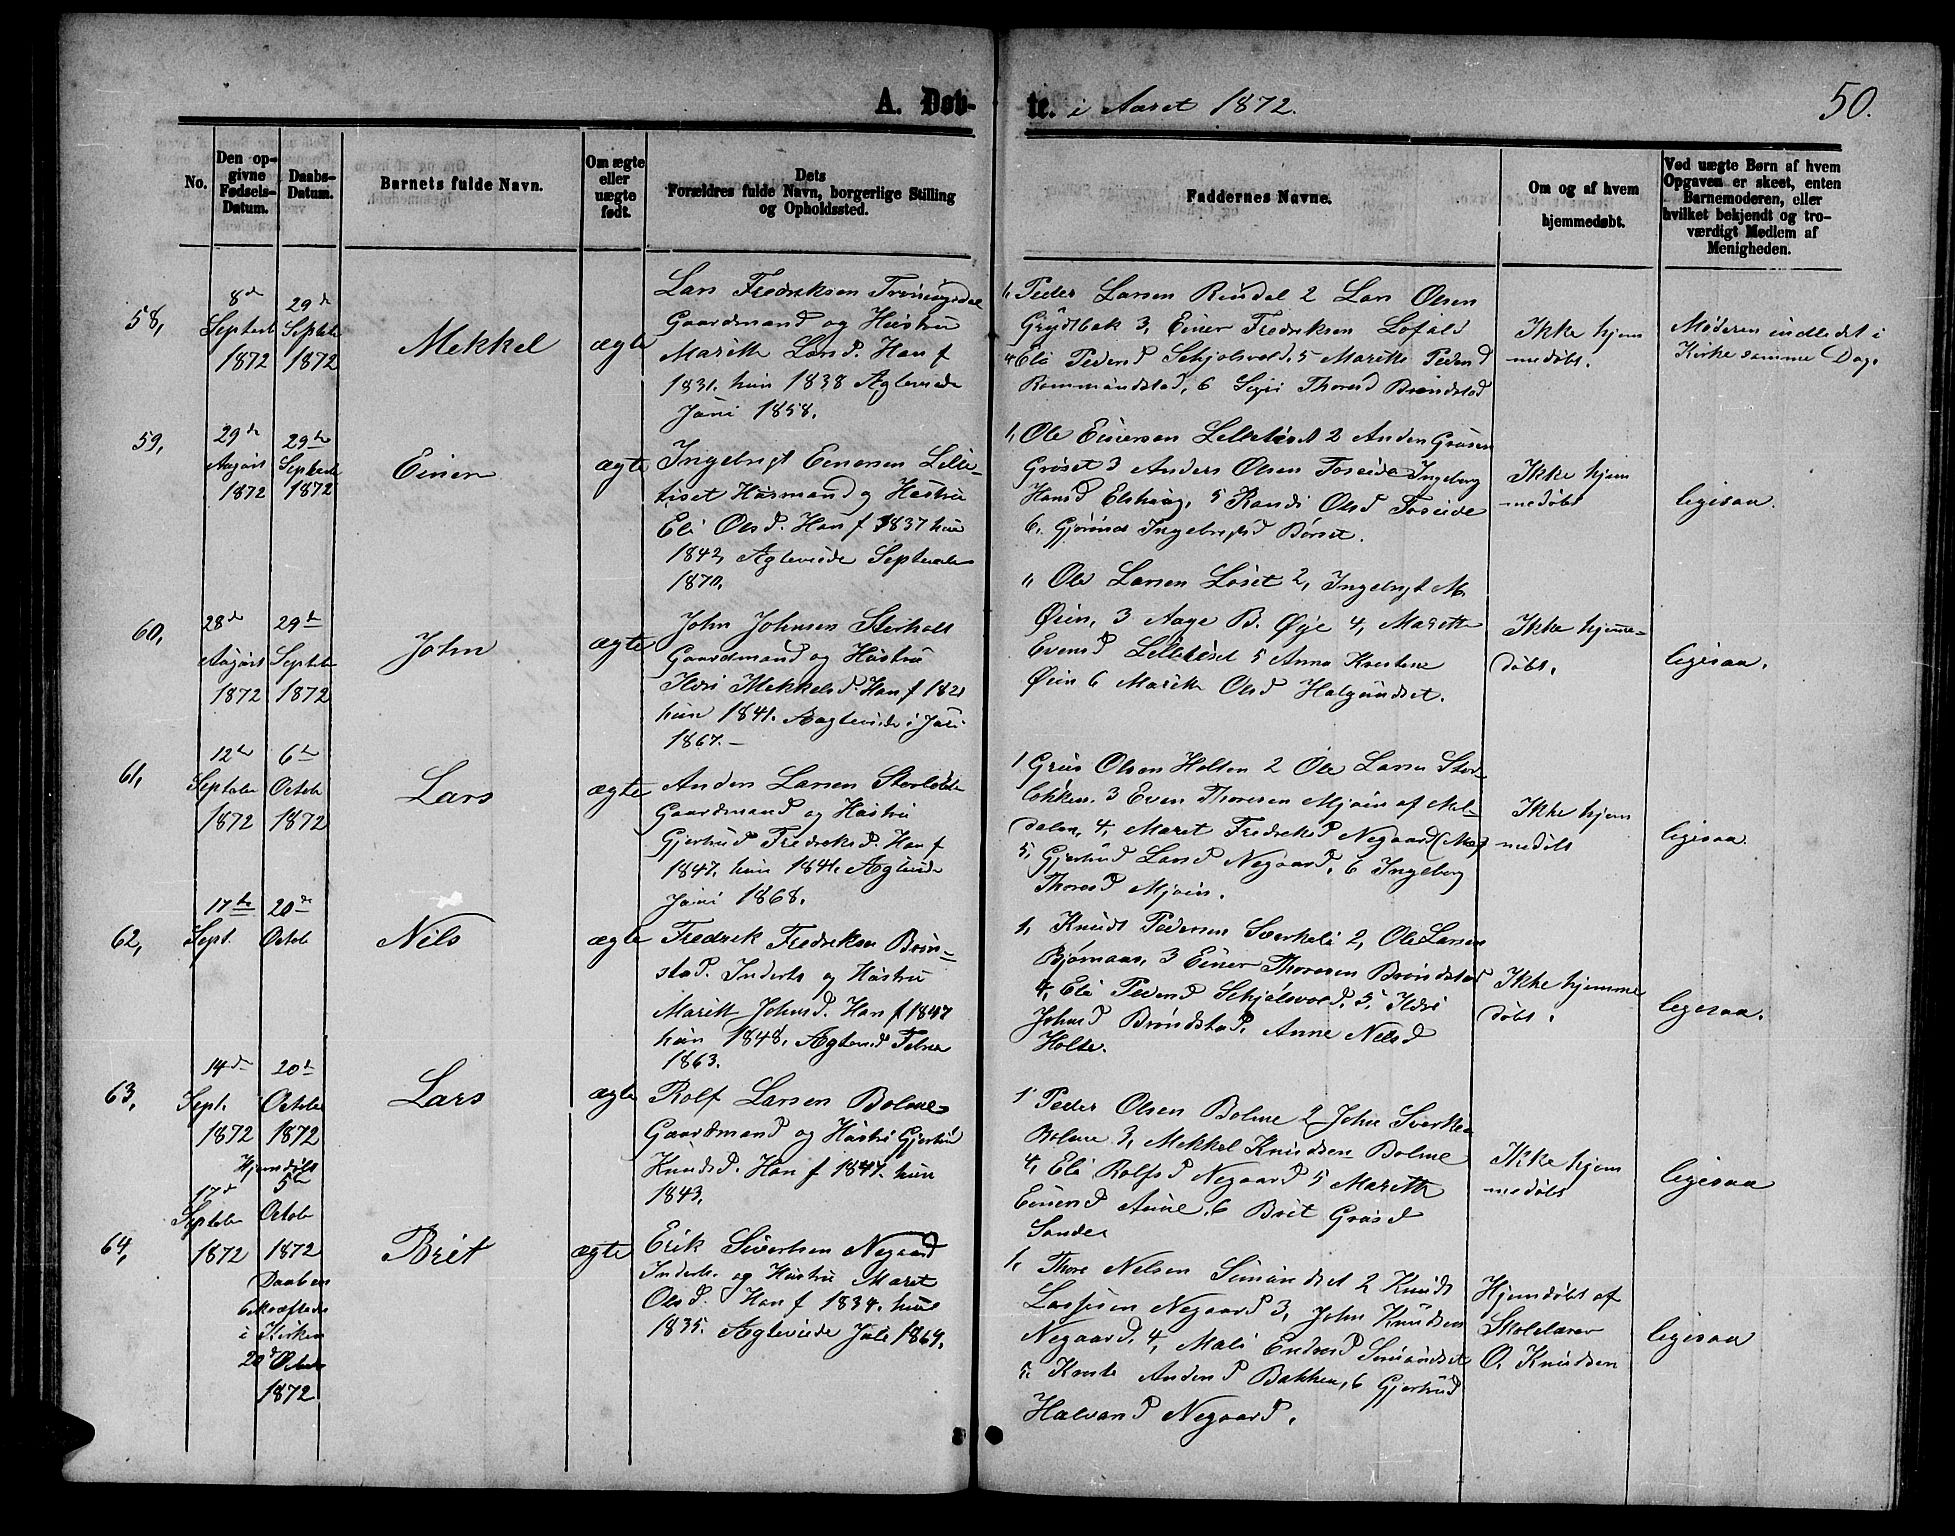 A. Døb-
te. i Aaret 1872.
50.
No.
Den op-
givne
Fødsels-
Datum.
Daabs-
Datum.
Barnets fulde Navn.
Om ægte
eller
uægte
født.
Dets
Forældres fulde Navn, borgerlige Stilling
og Opholdssted.
Faddernes Navne.
Om og af hvem
hjemmedøbt.
Ved uægte Børn af hvem
Opgaven er skeet, enten
Barnemoderen, eller
hvilket bekjendt og tro-
værdigt Medlem af
Menigheden.
58,
8de
Septeb
1872
29de
Septebr
1872
Mekkel
ægte
Lars Fredriksen
Gaardmand og Hustru
Marit Larsd. Han f
1831. hun 1838 Agteviede
Juni 1858.
1, Peder Larsen Rindal 2 Lars Olsen
Grytbak 3, Einer Fredriksen Lofald
4 Eli Pedersd Schjølsvold, 5 Marit Pedersd
Rommundstad, 6 Sigri Thoresd Brøndstad
Ikke hjem
medøbt.
Moderen indledet i
Kirke samme Dag.
59,
29de
August
1872
29de
Septebr
1872
Einer
ægte
Ingebrigt Einersen Lille-
tiset Husmand og Hustru
Eli Olsd. Han f 1837 hun
1842, Agteviede September
1870.
1, Ole Einersen Lilletiset 2 Anders
Grøset 3 Anders Olsen Foseide Ingeborg
Hansd Elshaug, 5 Randi Olsd Foseide
6, Ingebrigtsd Børset.
Ikke hjem
medøbt
ligesaa.
60,
28de
August
1872
29de
Septebr
1872
John
ægte
John Johnsen Storholt
Gaardmand og Hustru
Ildri Mekkelsd. Han f 182
hun 1841. Agteviede i Juli
1867.-
" Ole Larsen Løset 2, Ingebrigt M.
Øien, 3 Aage B. Øye 4, Marit
Evensd Lilletiset 5 Anna Kirstine
Øien 6 Marit Olsd Halgundset.
Ikke hjemme-
døbt.
ligesaa.
61,
12te
Septebr
1872
6te
Octobr
1872
Lars
ægte
Anders Larsen
Gaardmand og Hustru
Gjertrud Fredriksd. Han f
1847, hun 1841. Agteviede
Juni 1868.
1 Olsen Holten 2 Ole Larsen Stor
løkken. 3 Even Thoresen Mjøen af Mel-
dalen, 4, Marit Fredriksd Negaard
5, Gjertrud Larsd Negaard, 6 Ingeborg
Thoresd Mjøen.
Ikke hjem
medøbt
ligesaa.
62,
17de
Sept.
20de
Octob
Nils
ægte
Fredrik Fredriksen Brøn-
stad. Inderst og Hustru
Marit Johnsd. Han f 1847
hun 1848. Agteviede Febru
1863.
1, Knudt Pedersen Sverkeli 2, Ole Larsen
Bjørnaas, 3 Einer Thoresen Brøndstad
4, Eli Pedersd Schjølsvold, 5, Ildri
Johnsd Brøndstad, Anne Nilsd
Holte.
Ikke hjemme
døbt.
ligesaa.
63,
14de
Sept.
1872
20de
Octobr
1872
Lars
ægte
Rolf Larsen Bolme
Gaardmand og Hustru Gjertrud
Knudsd. Han f 1847. hun
1843.
1 Peder Olsen Bolme 2 John
Bolme 3, Mekkel Knudsen Bolme
4, Eli Rolfsd Negaard 5 Marit
Einersd Aune, 6 Brit
Sande
Ikke hjem
medøbt
ligesaa
64,
17de
Septebr
1872
Hjemdøbt
5te
Octob
1872
Daaben
bekræftede
i Kirken
20de Octob
1872.
Brit
ægte
Erik Sivertsen Negaard
Inderst og Hustru Marit
Olsd. Han f 1834. hun
1835. Agteviede Juli 1864.
1, Thore Nilsen Simundset 2 Knudt
Larssen Negaard 3, John Knudsen
Negaard, 4, Mali Endresd Simundset
5, Andersd Bakken, 6 Gjertrud
Halvorsd Negaard.
Hjemdøbt af
Skolelærer
O. Knudsen
ligesaa